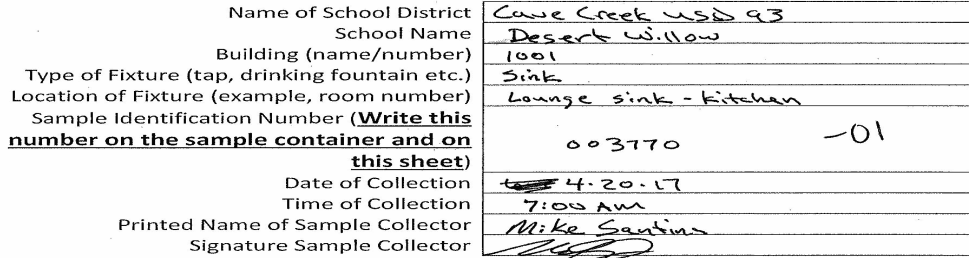 Name of School District Cave Creek USD 93
School Name Desert Willow
Building (name/number) 1001
Type of Fixture (tap, drinking fountain etc.) Sink
Location of Fixture (example, room number) Lounge sink - kitchen
Sample Identification Number (Write this
number on the sample container and on 003770 -01
this sheet)
Date of Collection 4.20.17
Time of Collection 7:00 AM
Printed Name of Sample Collector Mike Santino
Signature Sample Collector